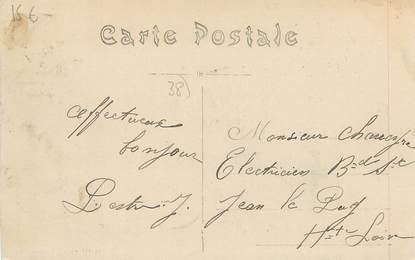 156-
Carte Postale
38)
affectueux
bonjour
Monsieur
Electricien Bd St
Jean le Puy
Hte Loire